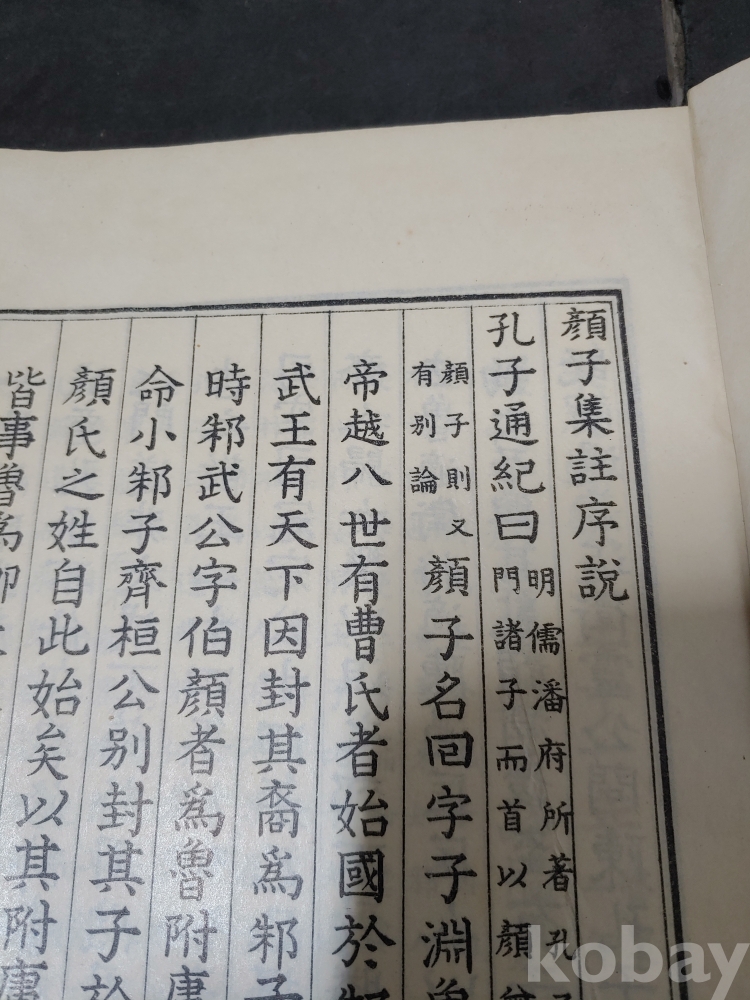 顔子集註序説
孔子通紀曰明儒潘府所著孔
門諸子而首以顔
顔子則又
有别論顔子名回字子淵魯
帝越八世有曹氏者始國於邾
武王有天下因封其裔爲邾子
時邾武公字伯顔者爲魯附庸
命小邾子齊桓公别封其子於
顔氏之姓自此始矣以其附庸
皆事魯爲卿
kobay